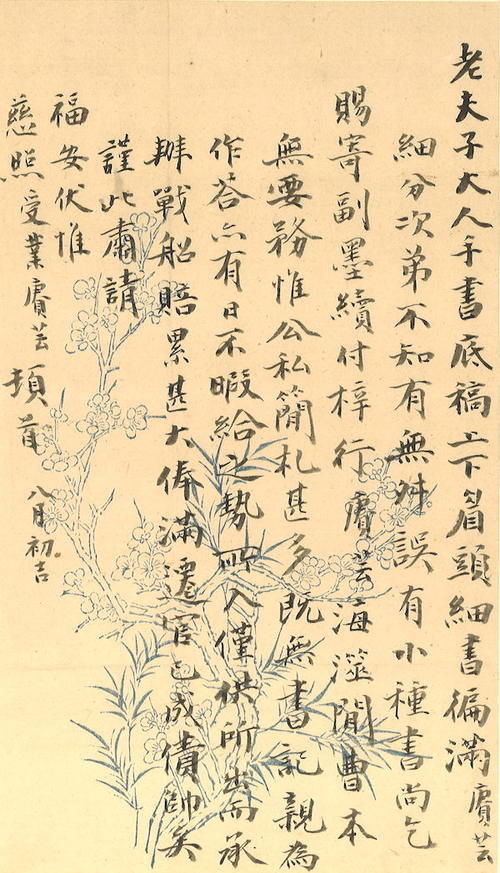 老夫子大人手書底稿上下眉頭細書徧滿賡芸
細分次弟不知有無舛誤有小種書尚乞
賜寄副墨續付梓行賡芸海澨閒曹本
無要務惟公私簡札甚多既無書記親為
作荅亦有日不暇給之勢所入僅供所出而承
辦戰船賠累甚大俸滿遷官已成債帥矣
謹此肅請
福安伏惟
慈照受業賡芸頓首 八月初吉